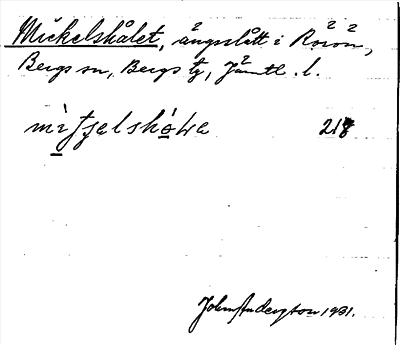 Mickelshålet, ängsslått i Rörön,
Bergs sn, Bergs tg, Jämtl. l.
218
John Andersson 1931.